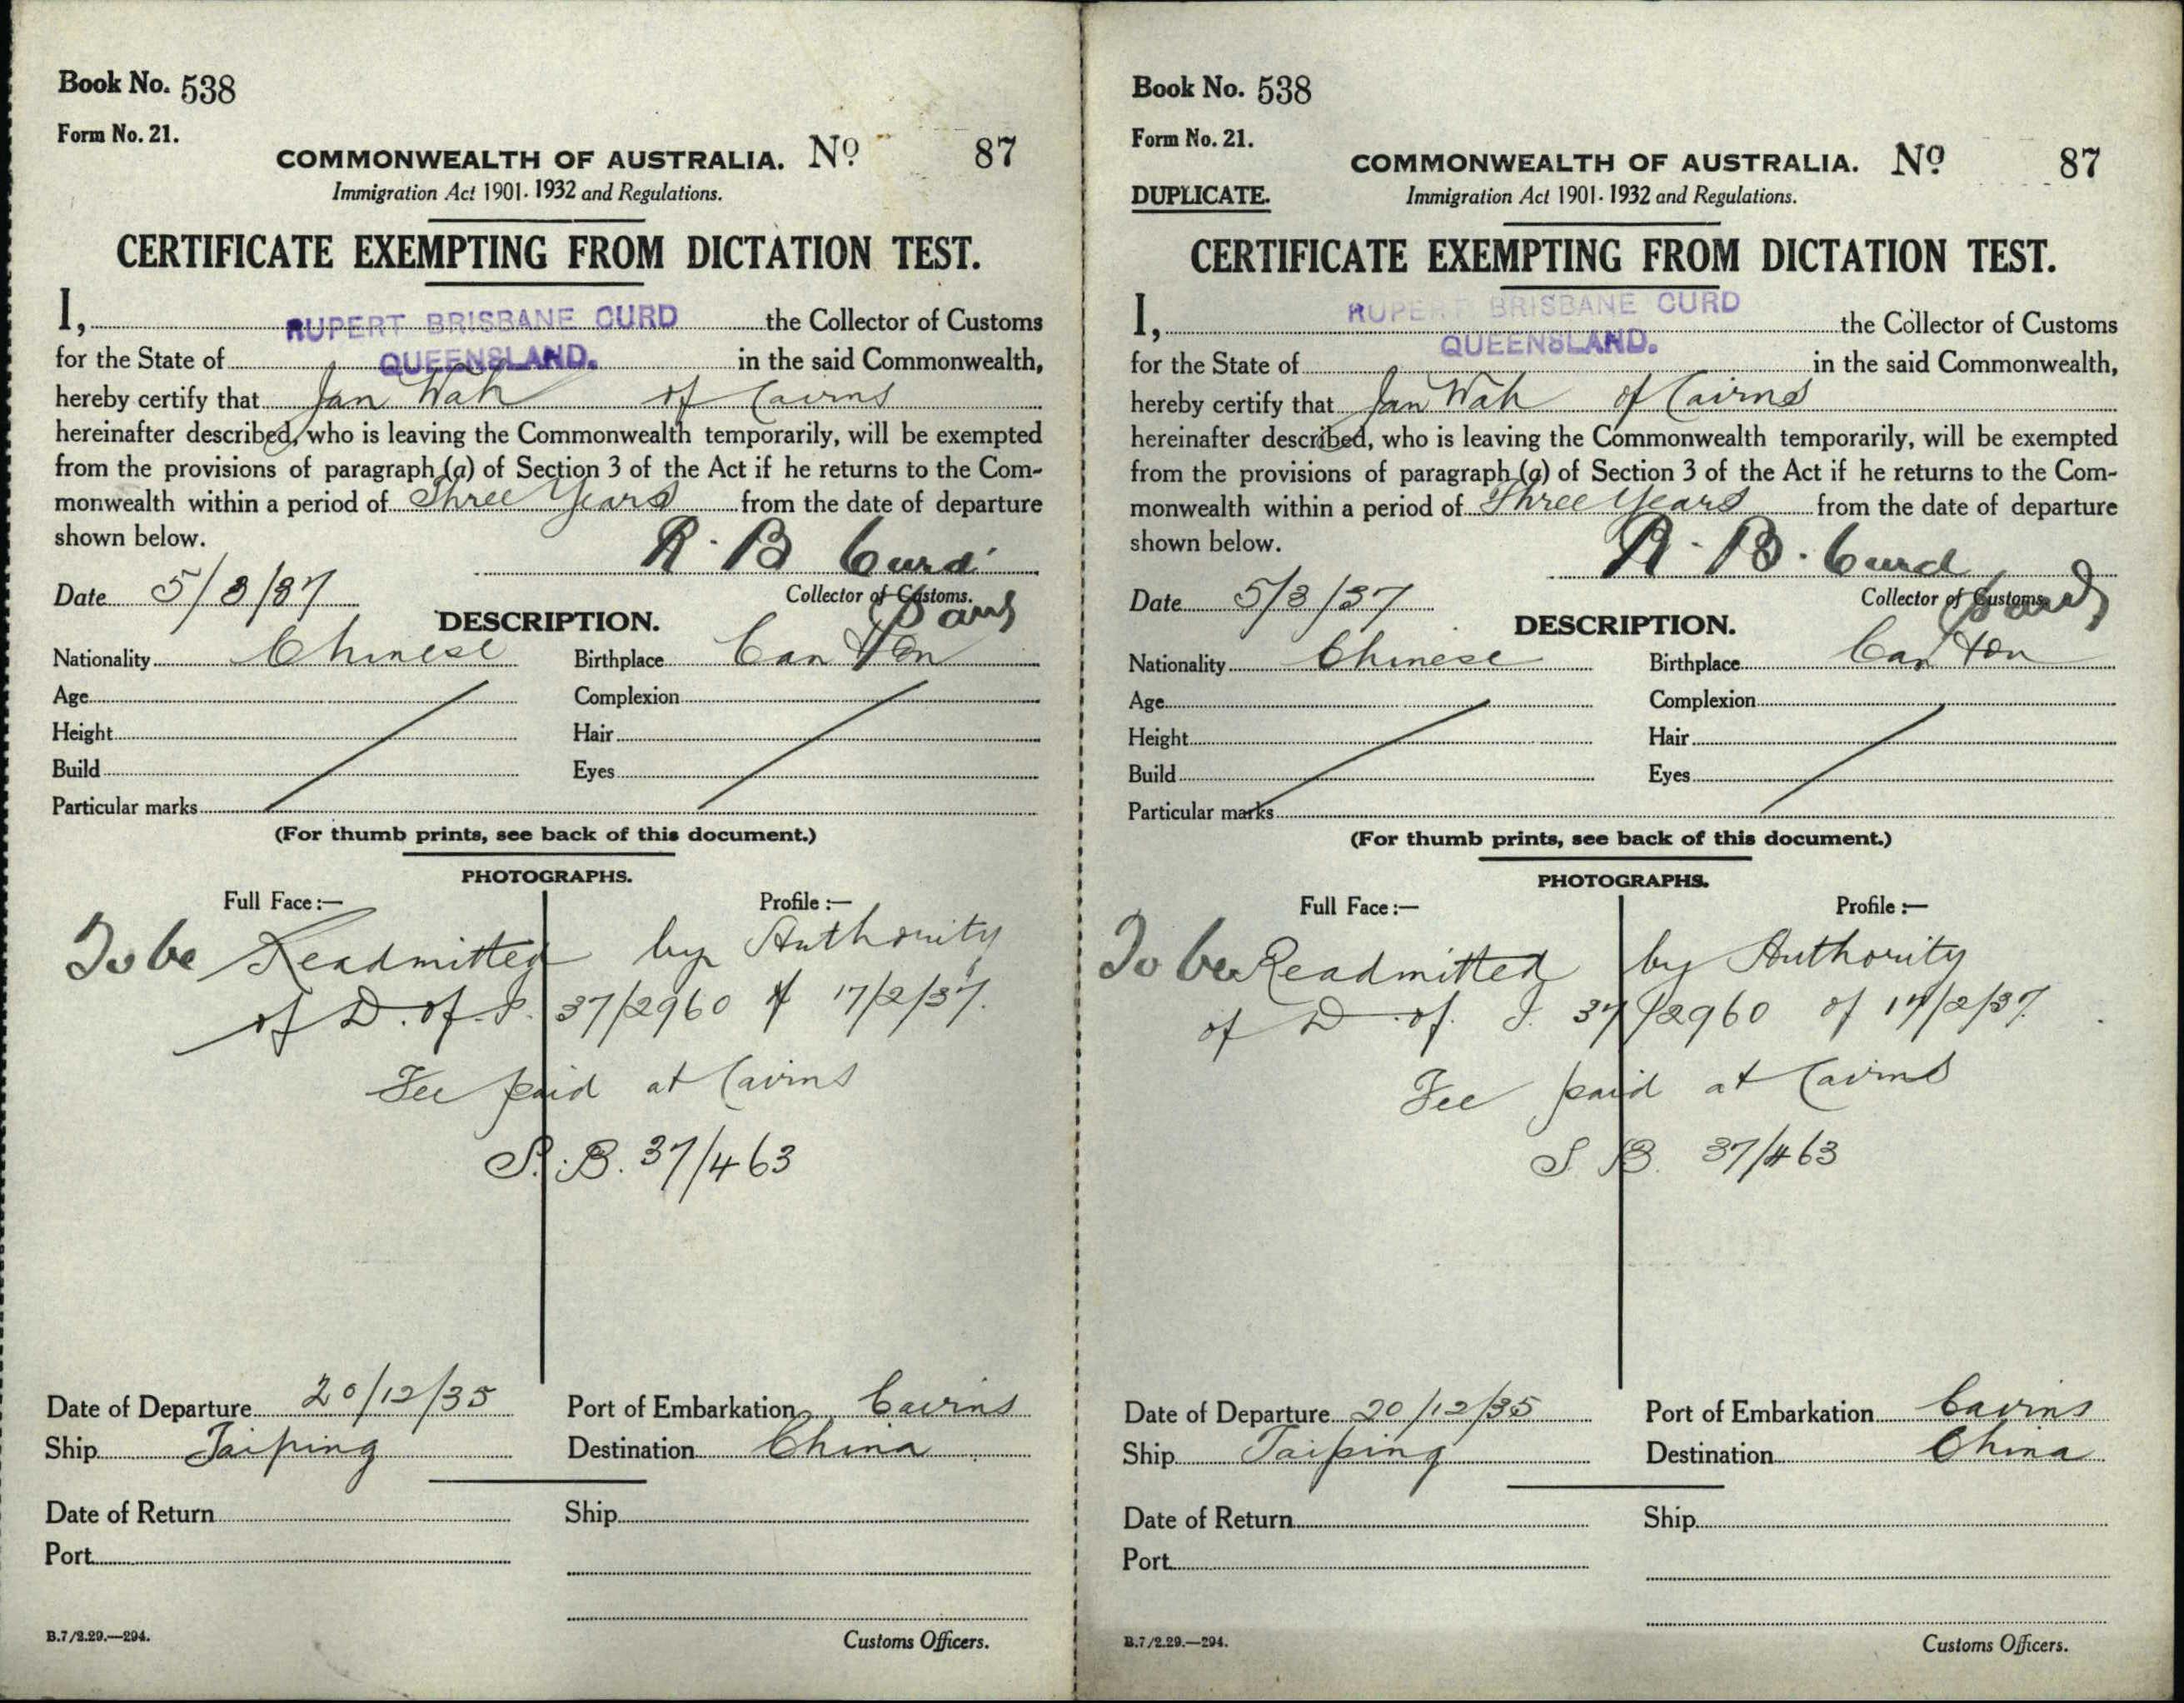 Book No. 538
Form No. 21.
COMMONWEALTH OF AUSTRALIA. Nº 87
Immigration Act 1901-1932 and Regulations.
CERTIFICATE EXEMPTING FROM DICTATION TEST.
I, RUPERT BRISBANE CURD the Collector of Customs
for the State of QUEENSLAND. in the said Commonwealth,
hereby certify that Jan Wah of Cairns
hereinafter described, who is leaving the Commonwealth temporarily, will be exempted
from the provisions of paragraph (a) of Section 3 of the Act if he returns to the Com-
monwealth within a period of Three Years from the date of departure
shown below.
R. B Curd
Date 5/3/37 Collector of Customs.
DESCRIPTION.
Nationality Chinese Birthplace Canton
Age Complexion
Height Hair
Build Eyes
Particular marks
(For thumb prints, see back of this document.)
PHOTOGRAPHS.
Full Face :— Profile :—
To be Readmitted by Authority
of D. of I. 37/2960 of 17/2/37.
Fee paid at Cairns
S. B. 37/463
Date of Departure 20/12/35 Port of Embarkation Cairns
Ship Taiping Destination China
Date of Return Ship
Port
B.7/2.29.—294. Customs Officers.
Book No. 538
Form No. 21.
COMMONWEALTH OF AUSTRALIA. Nº 87
DUPLICATE. Immigration Act 1901-1932 and Regulations.
CERTIFICATE EXEMPTING FROM DICTATION TEST.
I, RUPERT BRISBANE CURD the Collector of Customs
for the State of QUEENSLAND. in the said Commonwealth,
hereby certify that Jan Wah of Cairns
hereinafter described, who is leaving the Commonwealth temporarily, will be exempted
from the provisions of paragraph (a) of Section 3 of the Act if he returns to the Com-
monwealth within a period of Three Years from the date of departure
shown below.
R. B. Curd
Date 5/3/37 Collector of Customs
DESCRIPTION.
Nationality Chinese Birthplace Canton
Age Complexion
Height Hair
Build Eyes
Particular marks
(For thumb prints, see back of this document.)
PHOTOGRAPHS.
Full Face :— Profile :—
To be Readmitted by Authority
of D. of. I. 37/2960 of 17/2/37.
Fee paid at Cairns
S. B. 37/463
Date of Departure 20/12/35 Port of Embarkation Cairns
Ship Taiping Destination China
Date of Return Ship
Port
B.7/2.29.—294. Customs Officers.